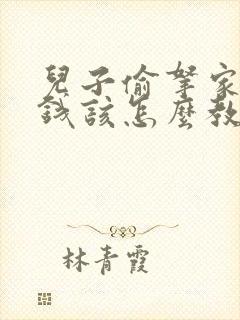 兒子偷拏家
錢該怎麼教
林青霞